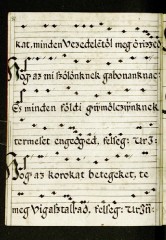 kat, minden Veszedelėtől meg őrizzed
Hogy az mi szőlőnknek gabonanknac
És minden földi gyümőlczünknek
termeset engedgyed, felseg: Urz:
Hogy az korokat betegeket, te
meg Vigasztalrad, felseg: Urzn: